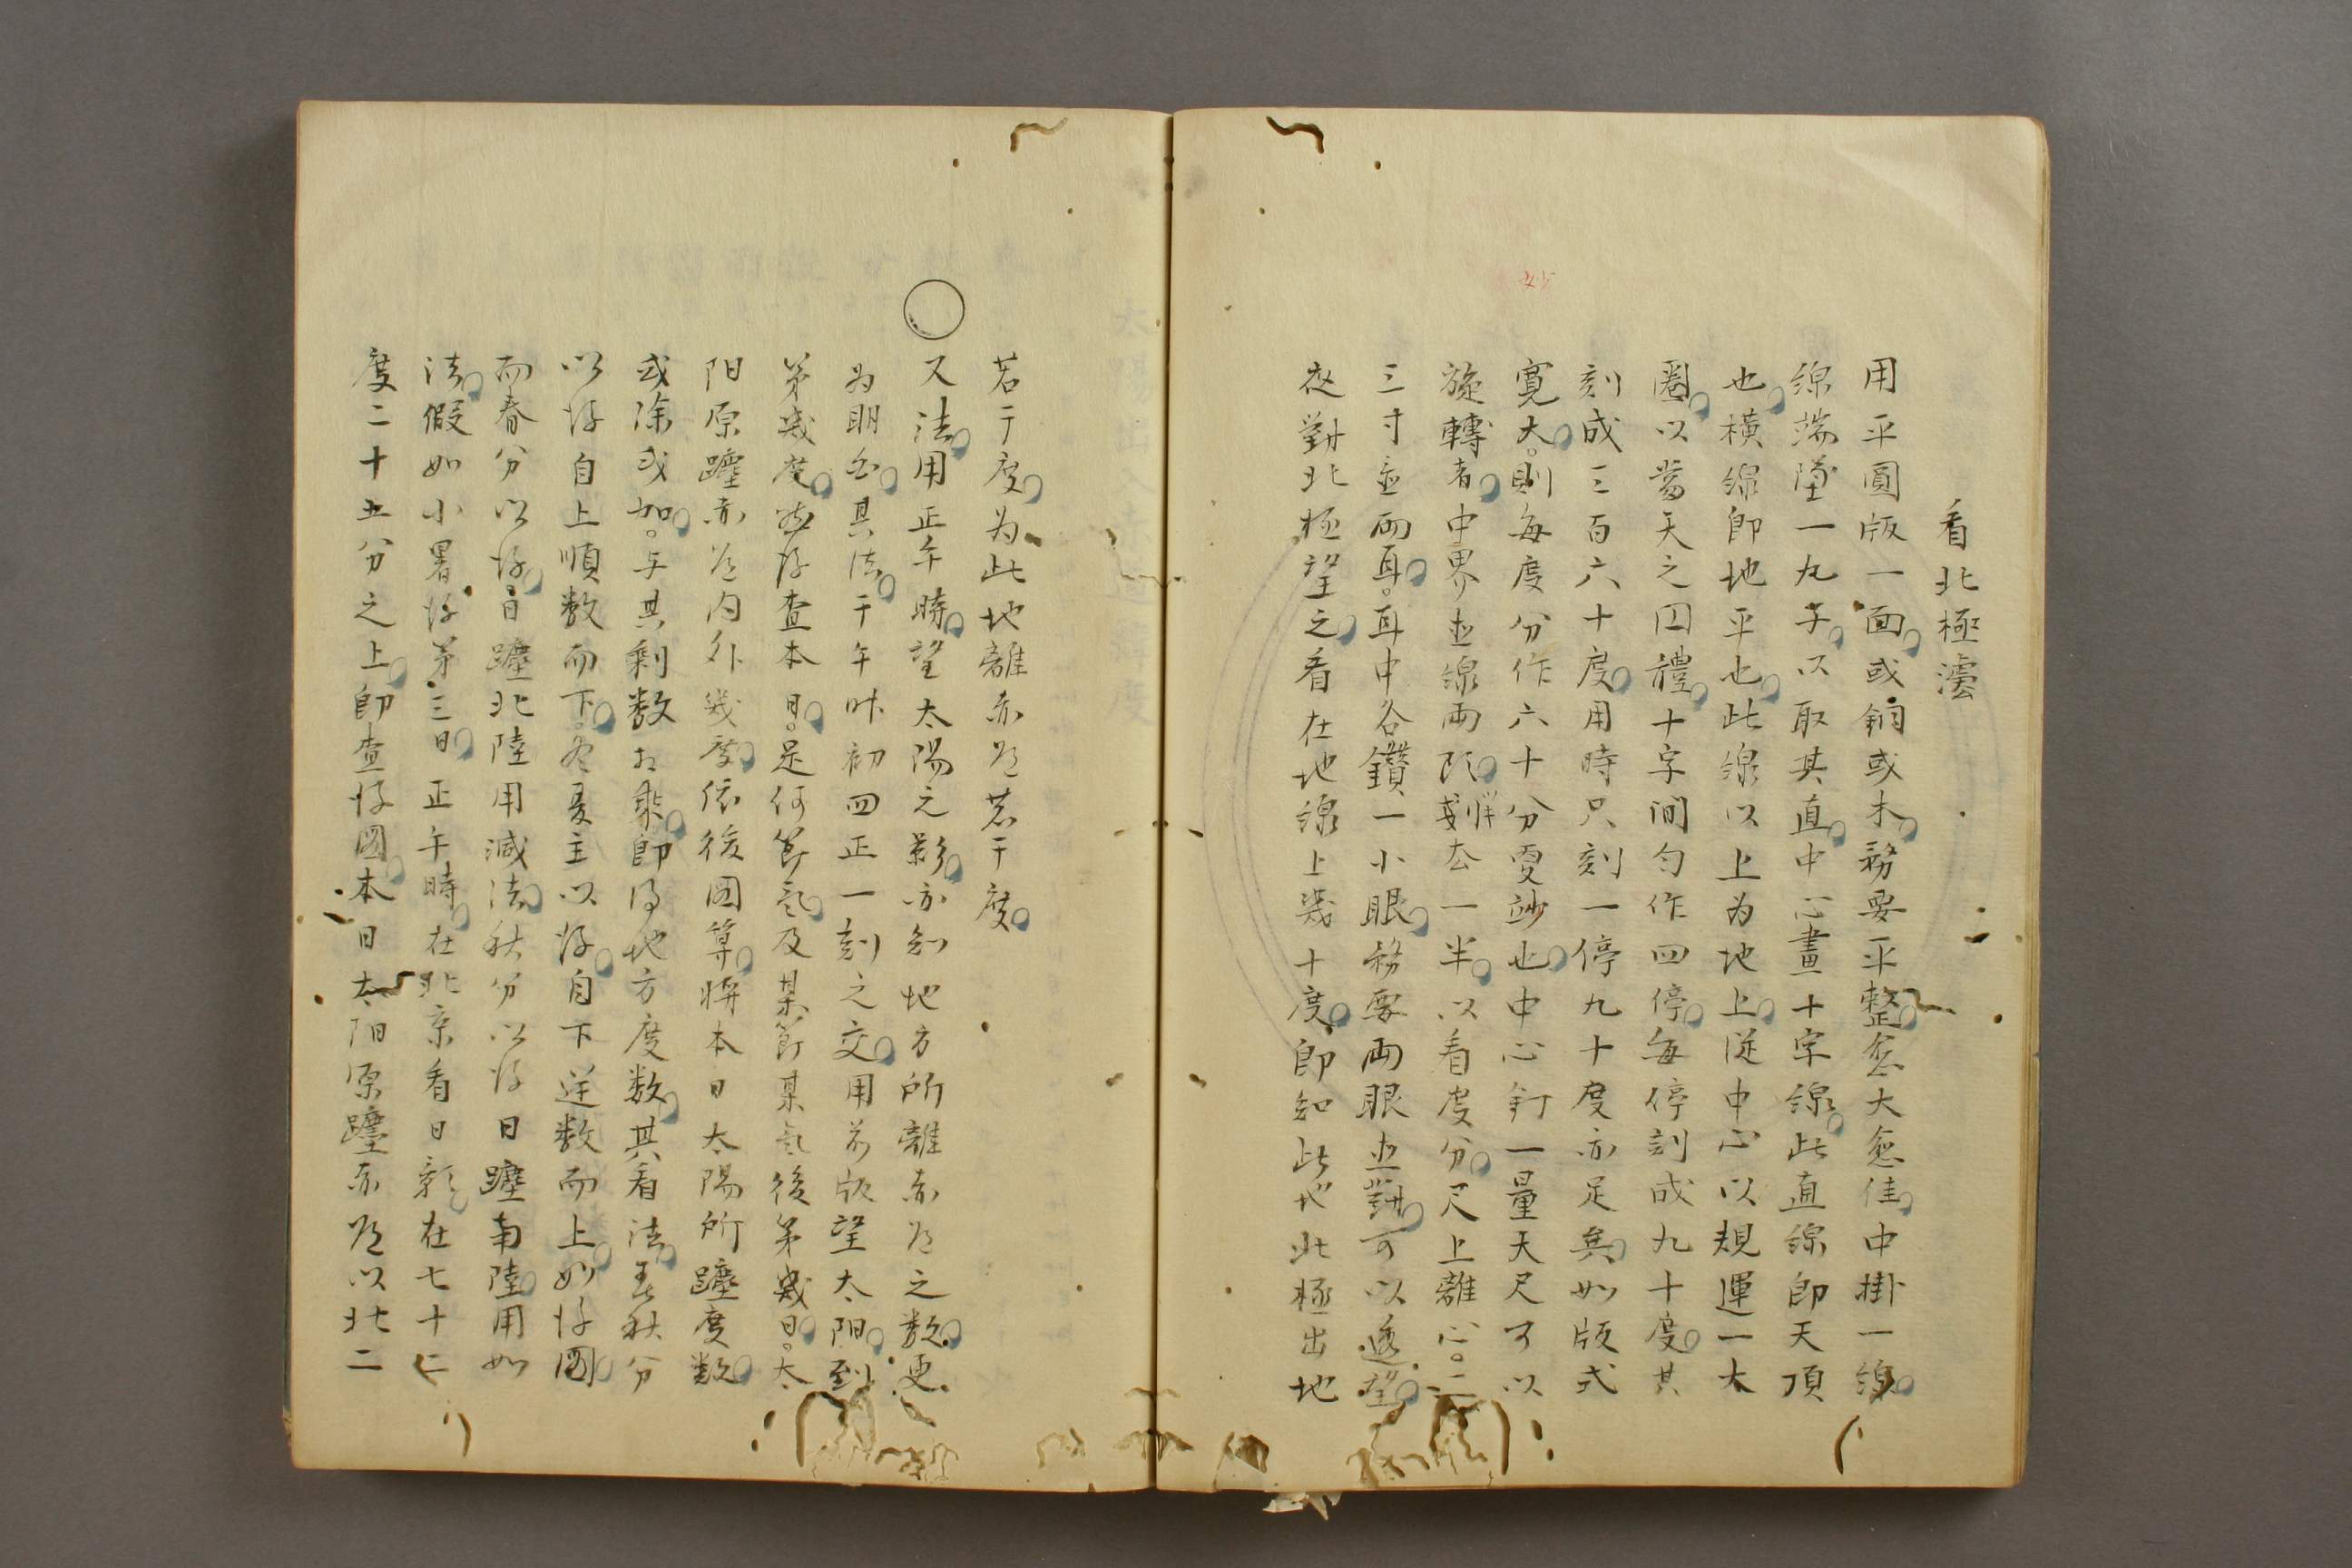 看北極灋
用平圓版一面或銅或木務要平整愈大愈佳中掛一線
線端墜一丸子以取其直中心畫十字線此直線即天頂
也橫線即地平也此線以上为地上從中心以規運一大
圏以當天之囗體十字間勻作四停每停刻成九十度其
刻成三百六十度用時只刻一停九十度亦足矣如版式
寛大則每度分作六十分更玅也中心釘一量天尺可以
旋轉者中界並線兩頭剗去一半以看度分尺上離心二
三寸並兩耳耳中各鑽一小眼務要兩眼並對可以透望
夜對北極望之看在地線上幾十度即知此地北極出地
若干度为此地離赤道若干度
又法用正午時望太陽之影亦知地方所離赤道之数更
为明白其法于午时初四正一刻之交用前版望太阳到
第幾度然後查本日是何節氣及某節某氣後第幾日太
阳原躔赤道内外幾度依後圖算將本日太陽所躔度数
或除或加与其剩数相乘即得地方度数其看法春秋分
以後自上順数而下冬夏至以後自下逆数而上如後圖
而春分以後日躔北陸用減法秋分以後日躔南陸用加
法假如小暑後第三日正午時在北京看日影在七十二
度二十五分之上即查後圖本日太阳原躔赤道以北二